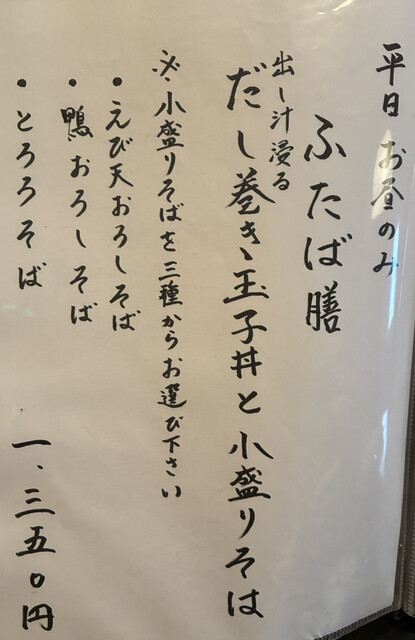 平日 お昼のみ
ふたば膳
出し汁浸る
だし巻き玉子丼と小盛りそば
※小盛りそばを三種からお選び下さい
・えび天おろしそば
・鴨おろしそば
・とろろそば
一、三五〇円